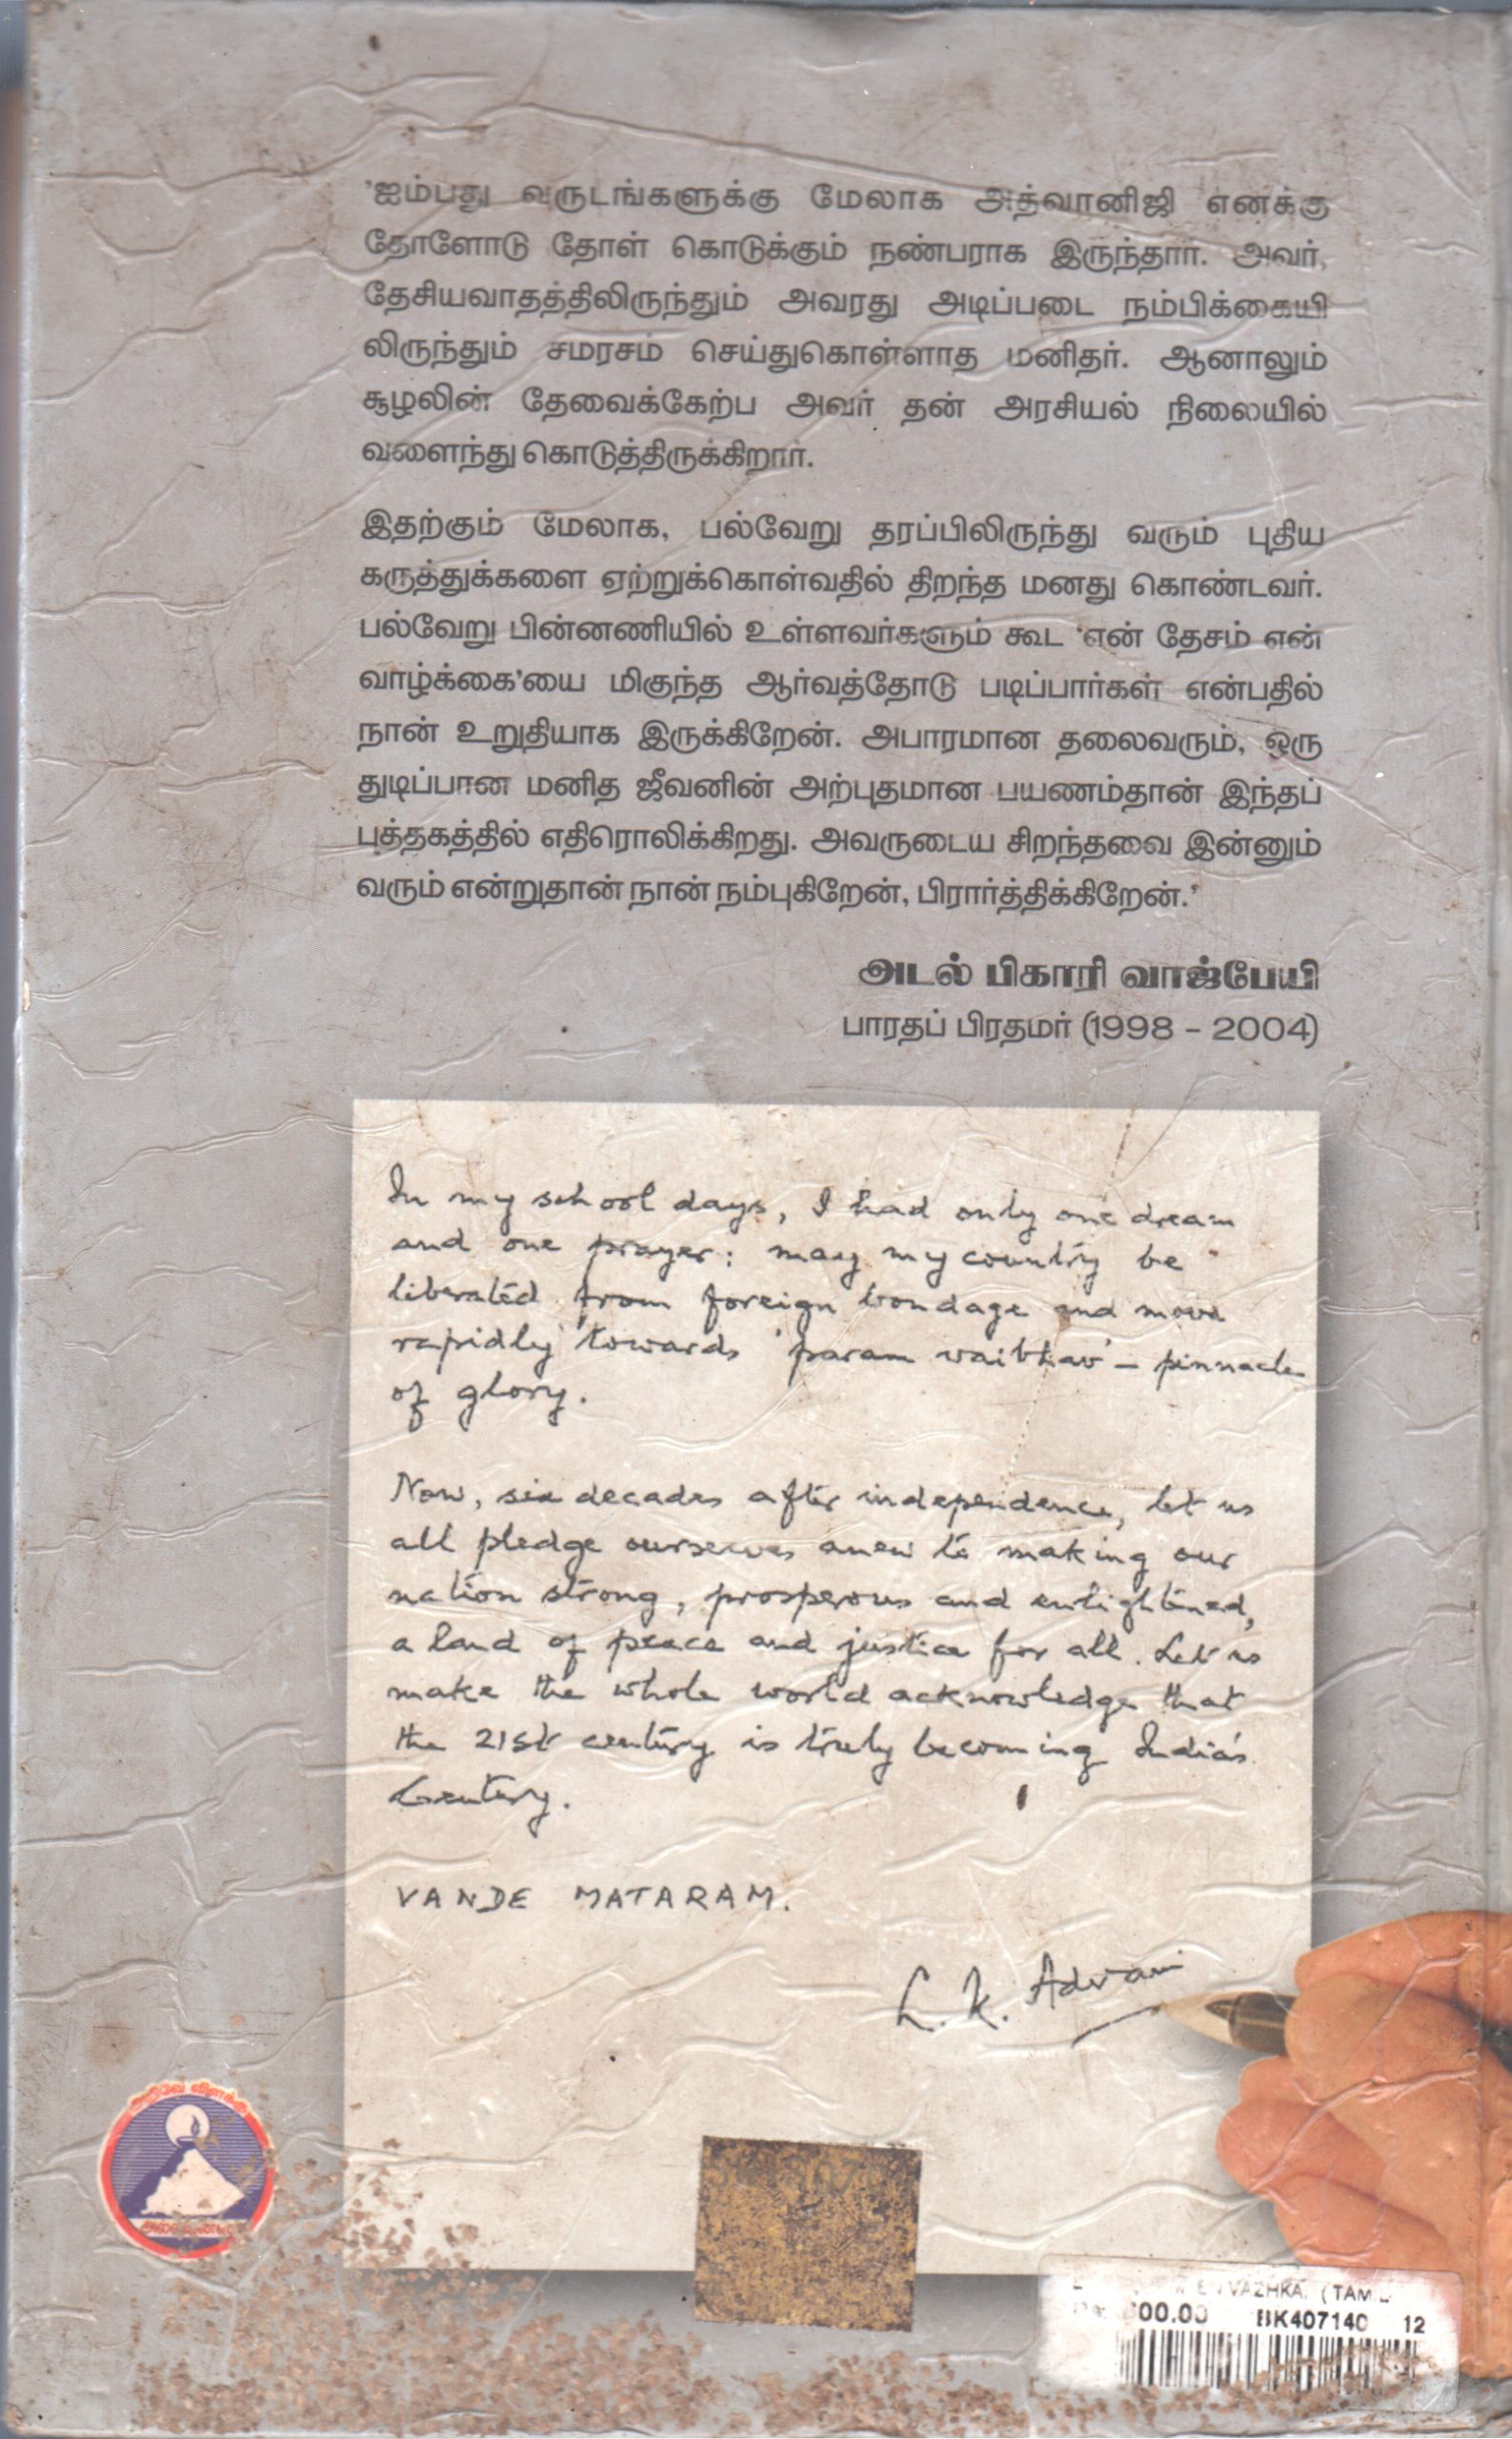 'ஐம்பது வருடங்களுக்கு மேலாக அத்வானிஜி எனக்கு
தோளோடு தோள் கொடுக்கும் நண்பராக இருந்தார். அவர்,
தேசியவாதத்திலிருந்தும் அவரது அடிப்படை நம்பிக்கையி
லிருந்தும் சமரசம் செய்துகொள்ளாத மனிதர். ஆனாலும்
சூழலின் தேவைக்கேற்ப அவர் தன் அரசியல் நிலையில்
வளைந்து கொடுத்திருக்கிறார்.
இதற்கும் மேலாக, பல்வேறு தரப்பிலிருந்து வரும் புதிய
கருத்துக்களை ஏற்றுக்கொள்வதில் திறந்த மனது கொண்டவர்.
பல்வேறு பின்னணியில் உள்ளவர்களும் கூட 'என் தேசம் என்
வாழ்க்கை'யை மிகுந்த ஆர்வத்தோடு படிப்பார்கள் என்பதில்
நான் உறுதியாக இருக்கிறேன். அபாரமான தலைவரும், ஒரு
துடிப்பான மனித ஜீவனின் அற்புதமான பயணம்தான் இந்தப்
புத்தகத்தில் எதிரொலிக்கிறது. அவருடைய சிறந்தவை இன்னும்
வரும் என்றுதான் நான் நம்புகிறேன், பிரார்த்திக்கிறேன்.'
அடல் பிகாரி வாஜ்பேயி
பாரதப் பிரதமர் (1998 – 2004)
In my school days, I had only one dream
and one prayer: may my country be
liberated from foreign bondage and move
rapidly towards 'param vaibhav' – pinnacle
of glory.
Now, six decades after independence, let us
all pledge ourselves anew to making our
nation strong, prosperous and enlightened,
a land of peace and justice for all. Let us
make the whole world acknowledge that
the 21st century is truly becoming India's
Century.
VANDE MATARAM.
L. K. Advani
VAZHKAI (TAMIL
00.00 BK407140 12